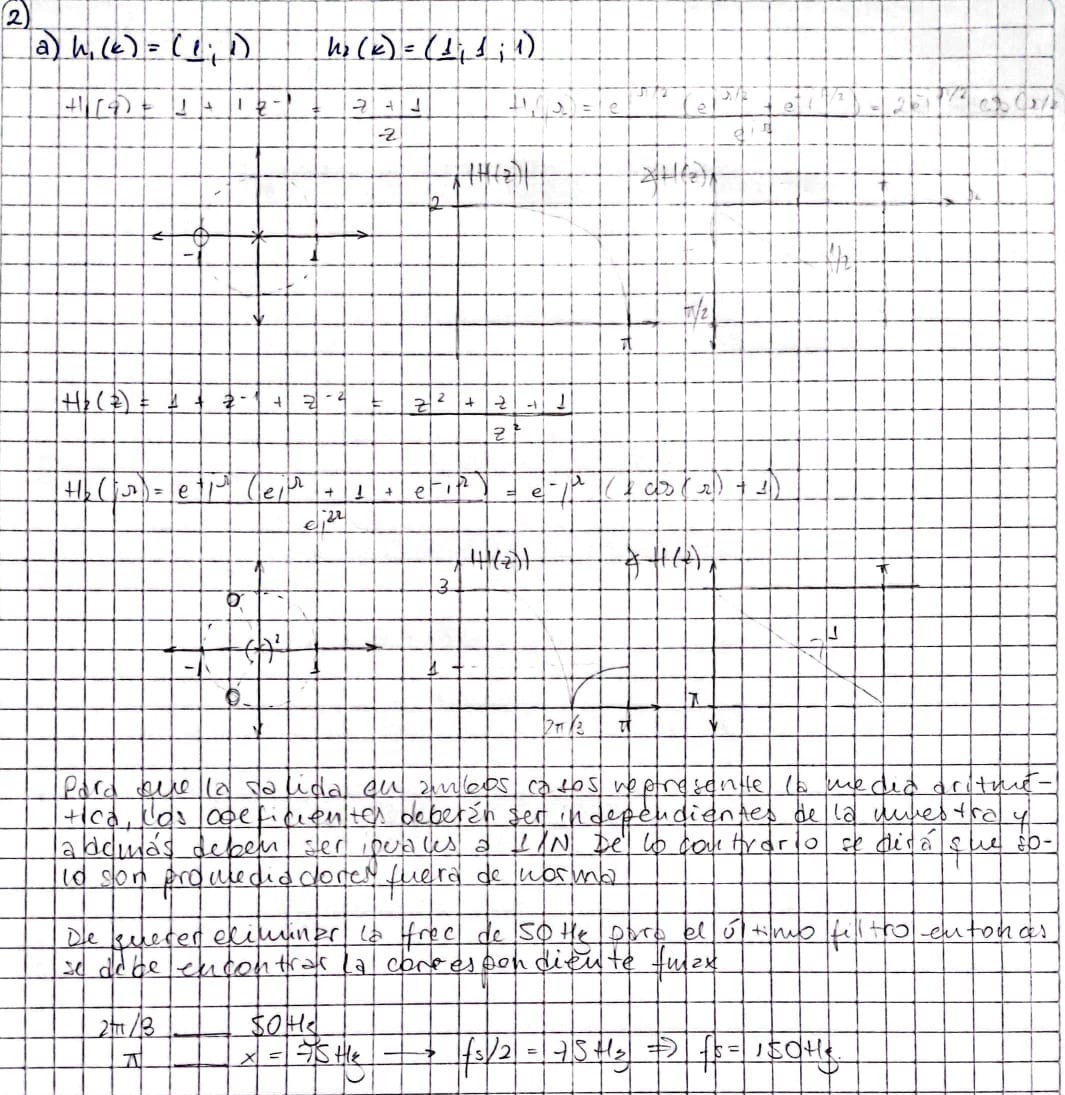 2)
a) h₁(k) = (1; 1)    h₂(k) = (1; 1; 1)
H₁(z) = 1 + 1 z⁻¹ = z + 1 / z    H₁(Ω) = e^{jΩ/2} (e^{jΩ/2} + e^{-jΩ/2}) / e^{jΩ} = 2e^{-jΩ/2} cos(Ω/2)
|H(z)|    ∡H(z)
2    π    Ω
-1    1    1/2
π/2
π
H₂(z) = 1 + z⁻¹ + z⁻² = z² + z + 1 / z²
H₂(jΩ) = e^{+jΩ} (e^{jΩ} + 1 + e^{-jΩ}) / e^{j2Ω} = e^{-jΩ} (2 cos(Ω) + 1)
|H(z)|    ∡H(z)
3    π
( )²    -1    1    1    1
2π/3    π    π
Para que la salida en ambos casos represente la media aritmé-
tica, los coeficientes deberán ser independientes de la muestra y
además deben ser iguales a 1/N. De lo contrario se dirá que so-
lo son promediadores fuera de norma
De querer eliminar la frec de 50 Hz para el último filtro entonces
se debe encontrar la correspondiente fmax
2π/3 ____ 50 Hz
π ____ x = 75 Hz → fs/2 = 75 Hz ⇒ fs = 150 Hz.